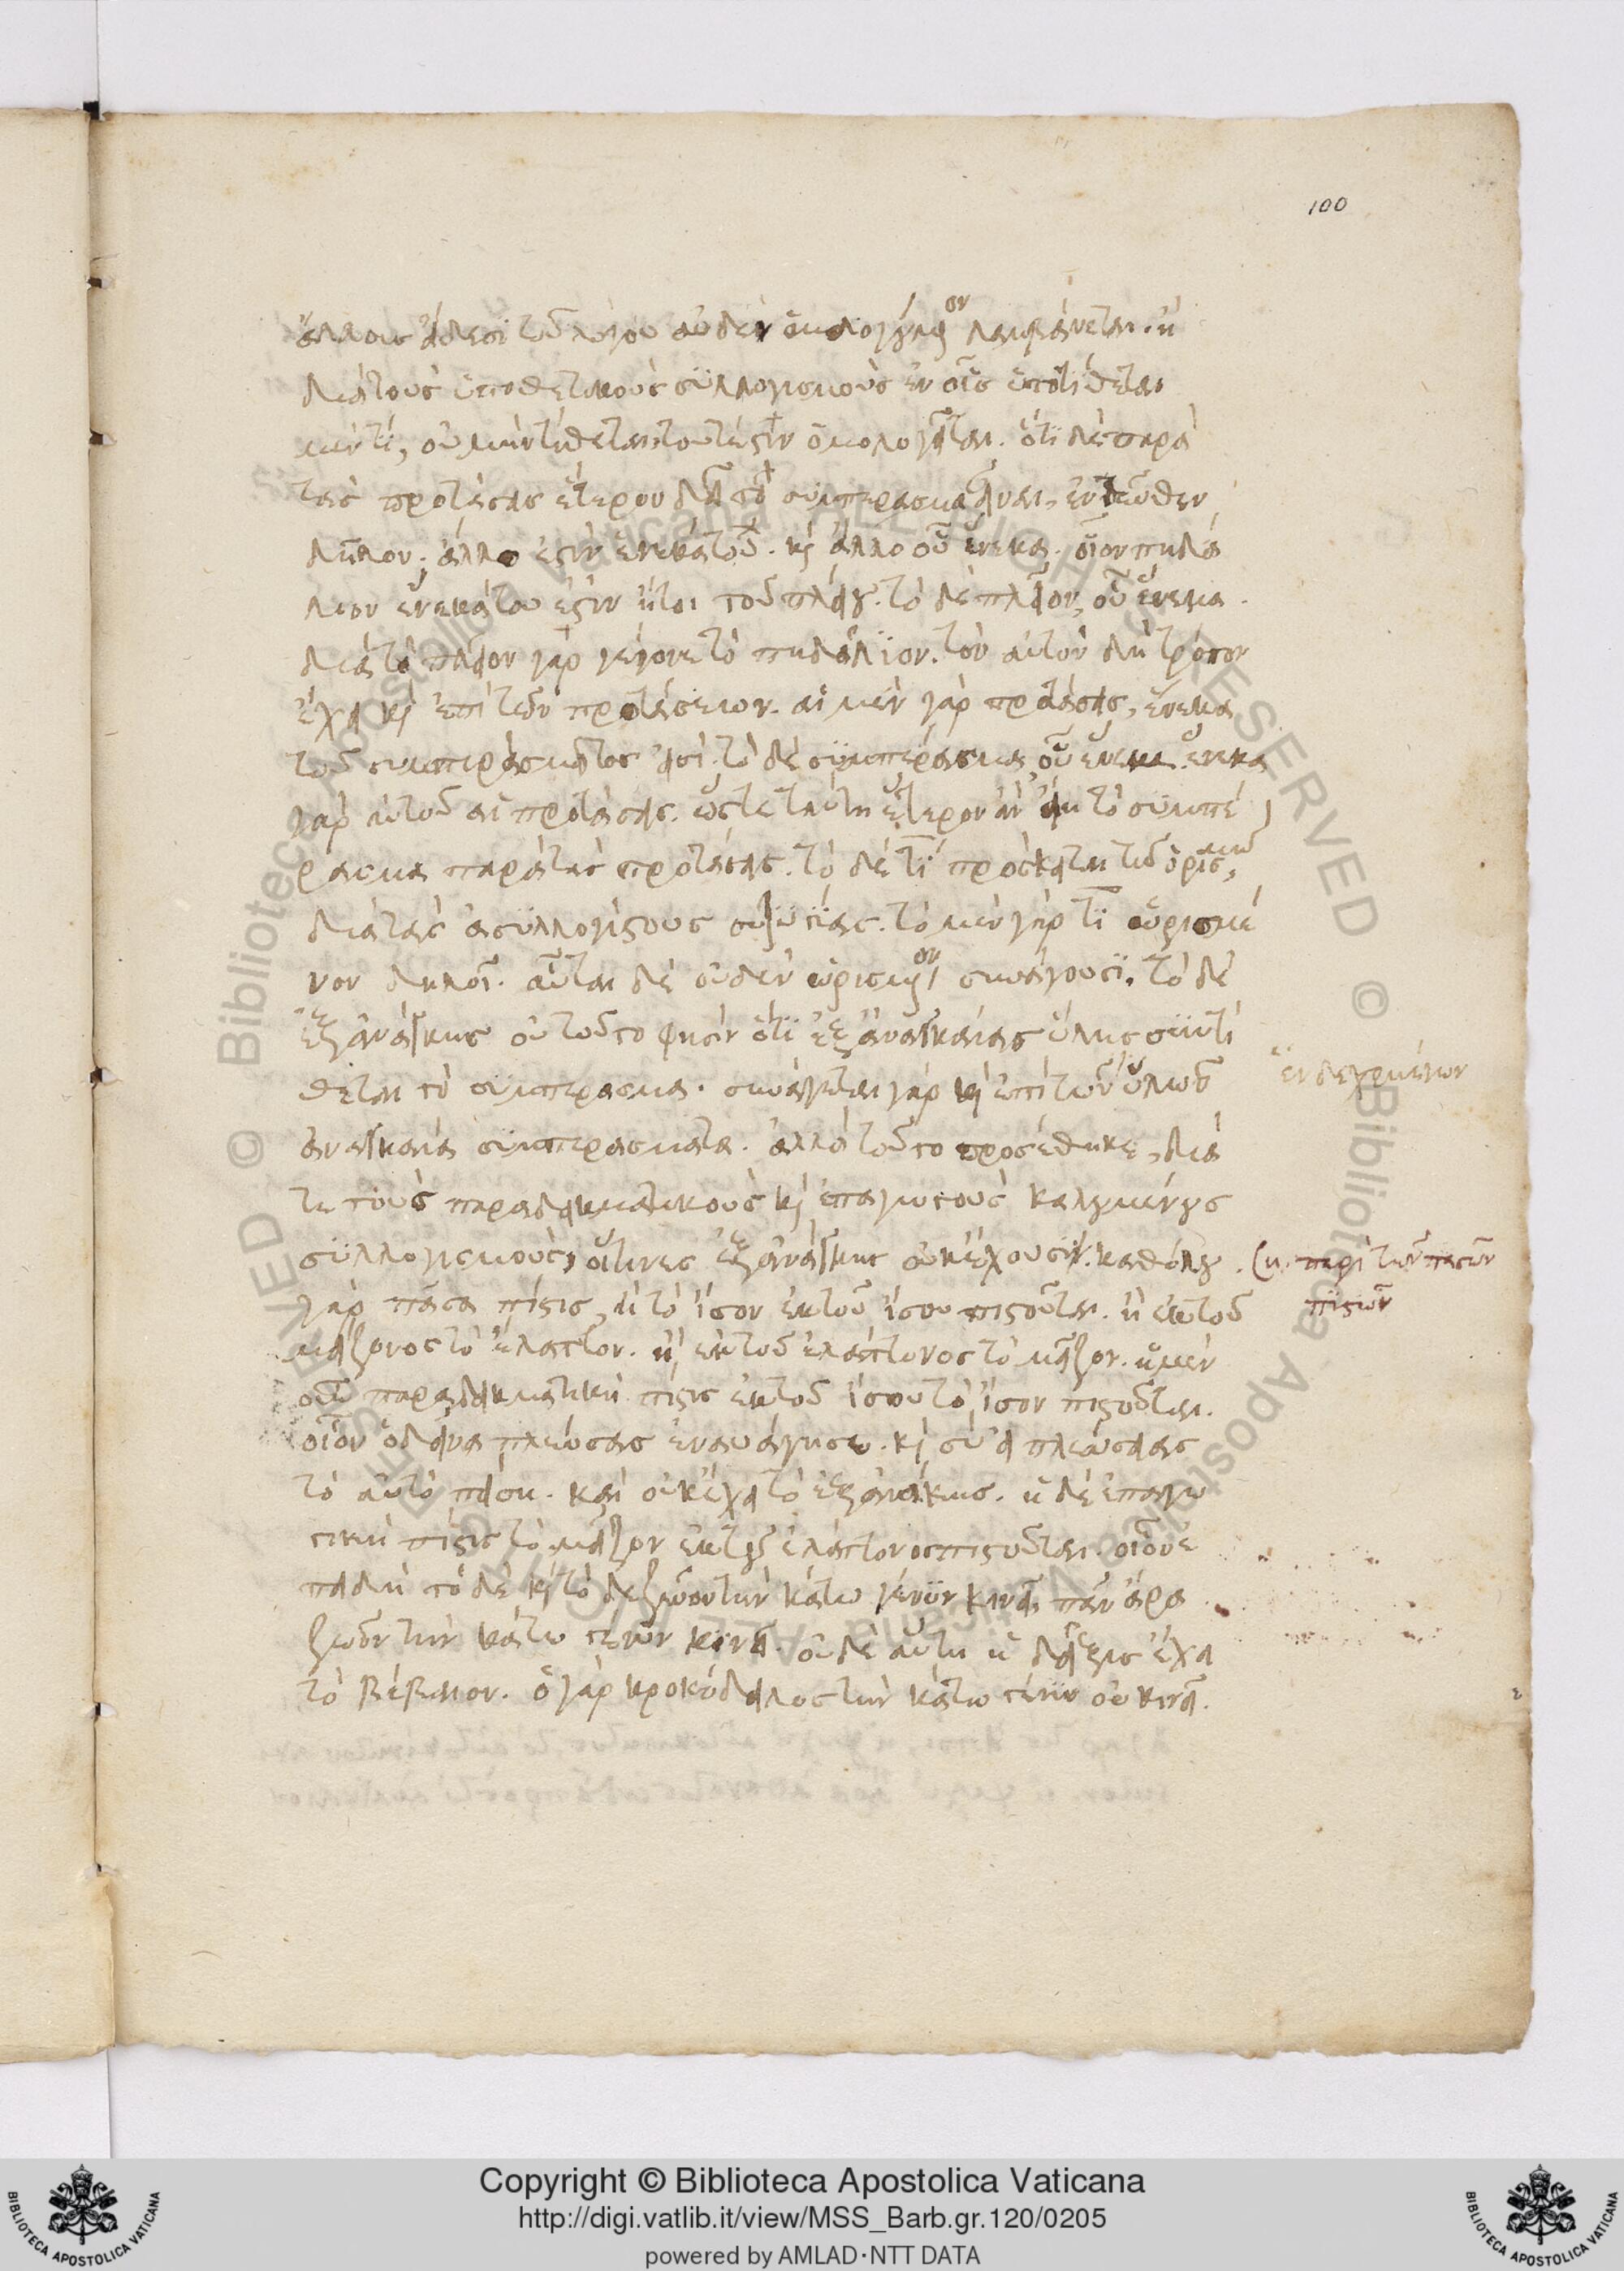 100
ἄλλοις εἴδεσι τοῦ λόγου οὐδὲν ὁμολογούμενον λαμβάνεται. ἢ
διὰ τοὺς ὑποθετικοὺς συλλογισμοὺς ἐν οἷς ὑποτίθεται
μέν τι, οὐ μὴν τίθεται. τουτέστιν ὁμολογεῖται. ὅτι δὲ παρὰ
τὰς προτάσεις ἕτερον δεῖ τὸ συμπέρασμα εἶναι, ἐντεῦθεν
δῆλον. ἄλλο ἐστὶν ἕνεκά του. καὶ ἄλλο οὗ ἕνεκα. οἷον πηδά
λιον ἕνεκά του ἐστὶν ἤτοι τοῦ πλείου. τὸ δὲ πλεῖον, οὗ ἕνεκα.
διὰ τὸ πλεῖον γὰρ γέγονε τὸ πηδάλιον. τὸν αὐτὸν δὴ τρόπον
ἔχει καὶ ἐπὶ τῶν προτάσεων. αἱ μὲν γὰρ προτάσεις, ἕνεκα
τοῦ συμπεράσματος εἰσί. τὸ δὲ συμπέρασμα, οὗ ἕνεκα. ἕνεκα
γὰρ αὐτοῦ αἱ προτάσεις. ὥστε ταύτη ἕτερον ἂν εἴη τὸ συμπέ
ρασμα παρὰ τὰς προτάσεις. τὸ δὲ τὶ πρόσκειται τῷ ὁρισμῷ,
διὰ τὰς ἀσυλλογίστους συζυγίας. τὸ μὲν γὰρ τὶ ὡρισμέ
νον δηλοῖ. αὗται δὲ οὐδὲν ὡρισμένον συνάγουσι. τὸ δὲ
ἐξ ἀνάγκης οὐ τοῦτο φησὶν ὅτι ἐξ ἀναγκαίας ὕλης συντί
θεται τὸ συμπέρασμα. συνάγεται γὰρ καὶ ἐπὶ τῶν ὑλῶν
ἐνδεχομένων
ἀναγκαῖα συμπεράσματα. ἀλλὰ τοῦτο προσέθηκε, διά
τε τοὺς παραδειγματικοὺς καὶ ἐπαγωγικοὺς καλουμένους
συλλογισμούς, οἵτινες ἐξ ἀνάγκης οὐκ ἔχουσιν. καθόλου
περὶ τῶν πασῶν
πίστεων
γὰρ πᾶσα πίστις, ἢ τὸ ἴσον ἐκ τοῦ ἴσου πιστοῦται. ἢ ἐκ τοῦ
μείζονος τὸ ἔλαττον. ἢ ἐκ τοῦ ἐλάττονος τὸ μεῖζον. ἡ μὲν
οὖν παραδειγματικὴ πίστις ἐκ τοῦ ἴσου τὸ ἴσον πιστοῦται.
οἷον ὁ δεῖνα πλεύσας ἐναυάγησε. καὶ σὺ εἰ πλεύσειας
τὸ αὐτὸ πείσῃ. καὶ οὐκ ἔχει τὸ ἐξ ἀνάγκης. ἡ δὲ ἐπαγω
γικὴ πίστις τὸ μεῖζον ἐκ τοῦ ἐλάττονος πιστοῦται. οἷον ἐ
πειδὴ τόδε καὶ τόδε ζῷον τὴν κάτω γένυν κινεῖ πᾶν ἄρα
ζῷον τὴν κάτω γένυν κινεῖ. οὐδὲ αὕτη ἡ δεῖξις ἔχει
τὸ βέβαιον. ὁ γὰρ κροκόδειλος τὴν κάτω γένυν οὐ κινεῖ.
Copyright © Biblioteca Apostolica Vaticana
http://digi.vatlib.it/view/MSS_Barb.gr.120/0205
powered by AMLAD·NTT DATA